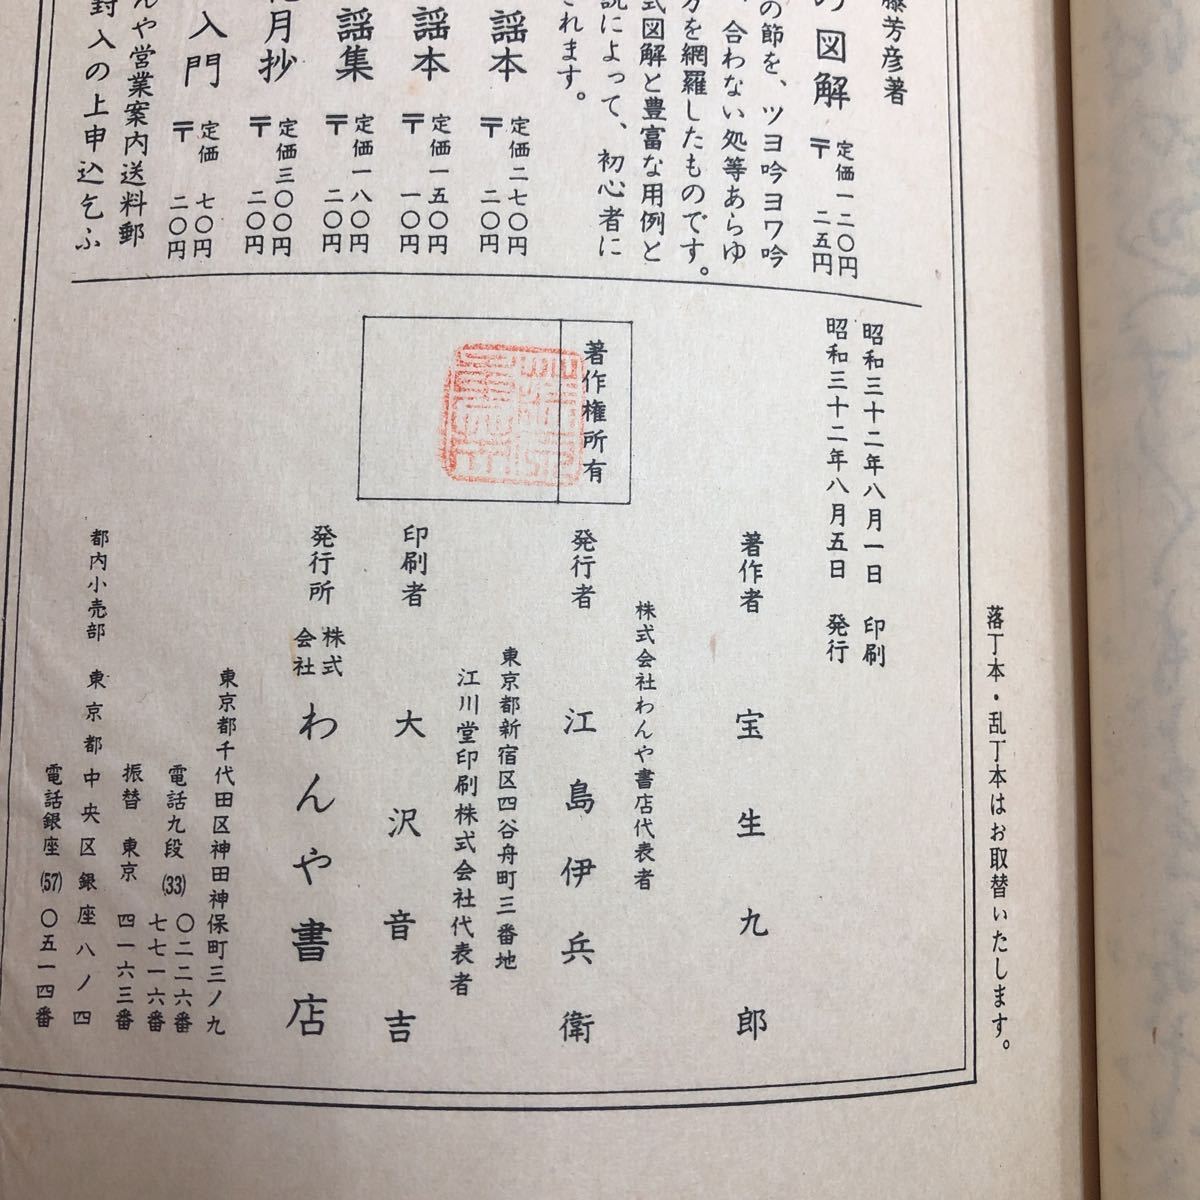 落丁本・乱丁本はお取替いたします。
藤芳彦著
の図解 定価一二〇円
〒 二五円
の節を、ツヨ吟ヨワ吟
合わない処等あらゆ
方を網羅したものです。
式図解と豊富な用例と
説によって、初心者に
されます。
謡本 定価二七〇円
〒 二〇円
謡本 定価一五〇円
〒 一〇円
謡集 定価一八〇円
〒 二〇円
月抄 定価三〇〇円
〒 二〇円
入門 定価 七〇円
〒 二〇円
んや営業案内送料郵
封入の上申込乞ふ
昭和三十二年八月一日 印刷
昭和三十二年八月五日 発行
著作権所有
著作者 宝生九郎
株式会社わんや書店代表者
発行者 江島伊兵衛
東京都新宿区四谷舟町三番地
江川堂印刷株式会社代表者
印刷者 大沢音吉
発行所 株式会社 わんや書店
東京都千代田区神田神保町三ノ九
電話九段(33) 〇二二六番
七七一六番
振替 東京 四一六三番
都内小売部 東京都中央区銀座八ノ四
電話銀座(57)〇五一四番